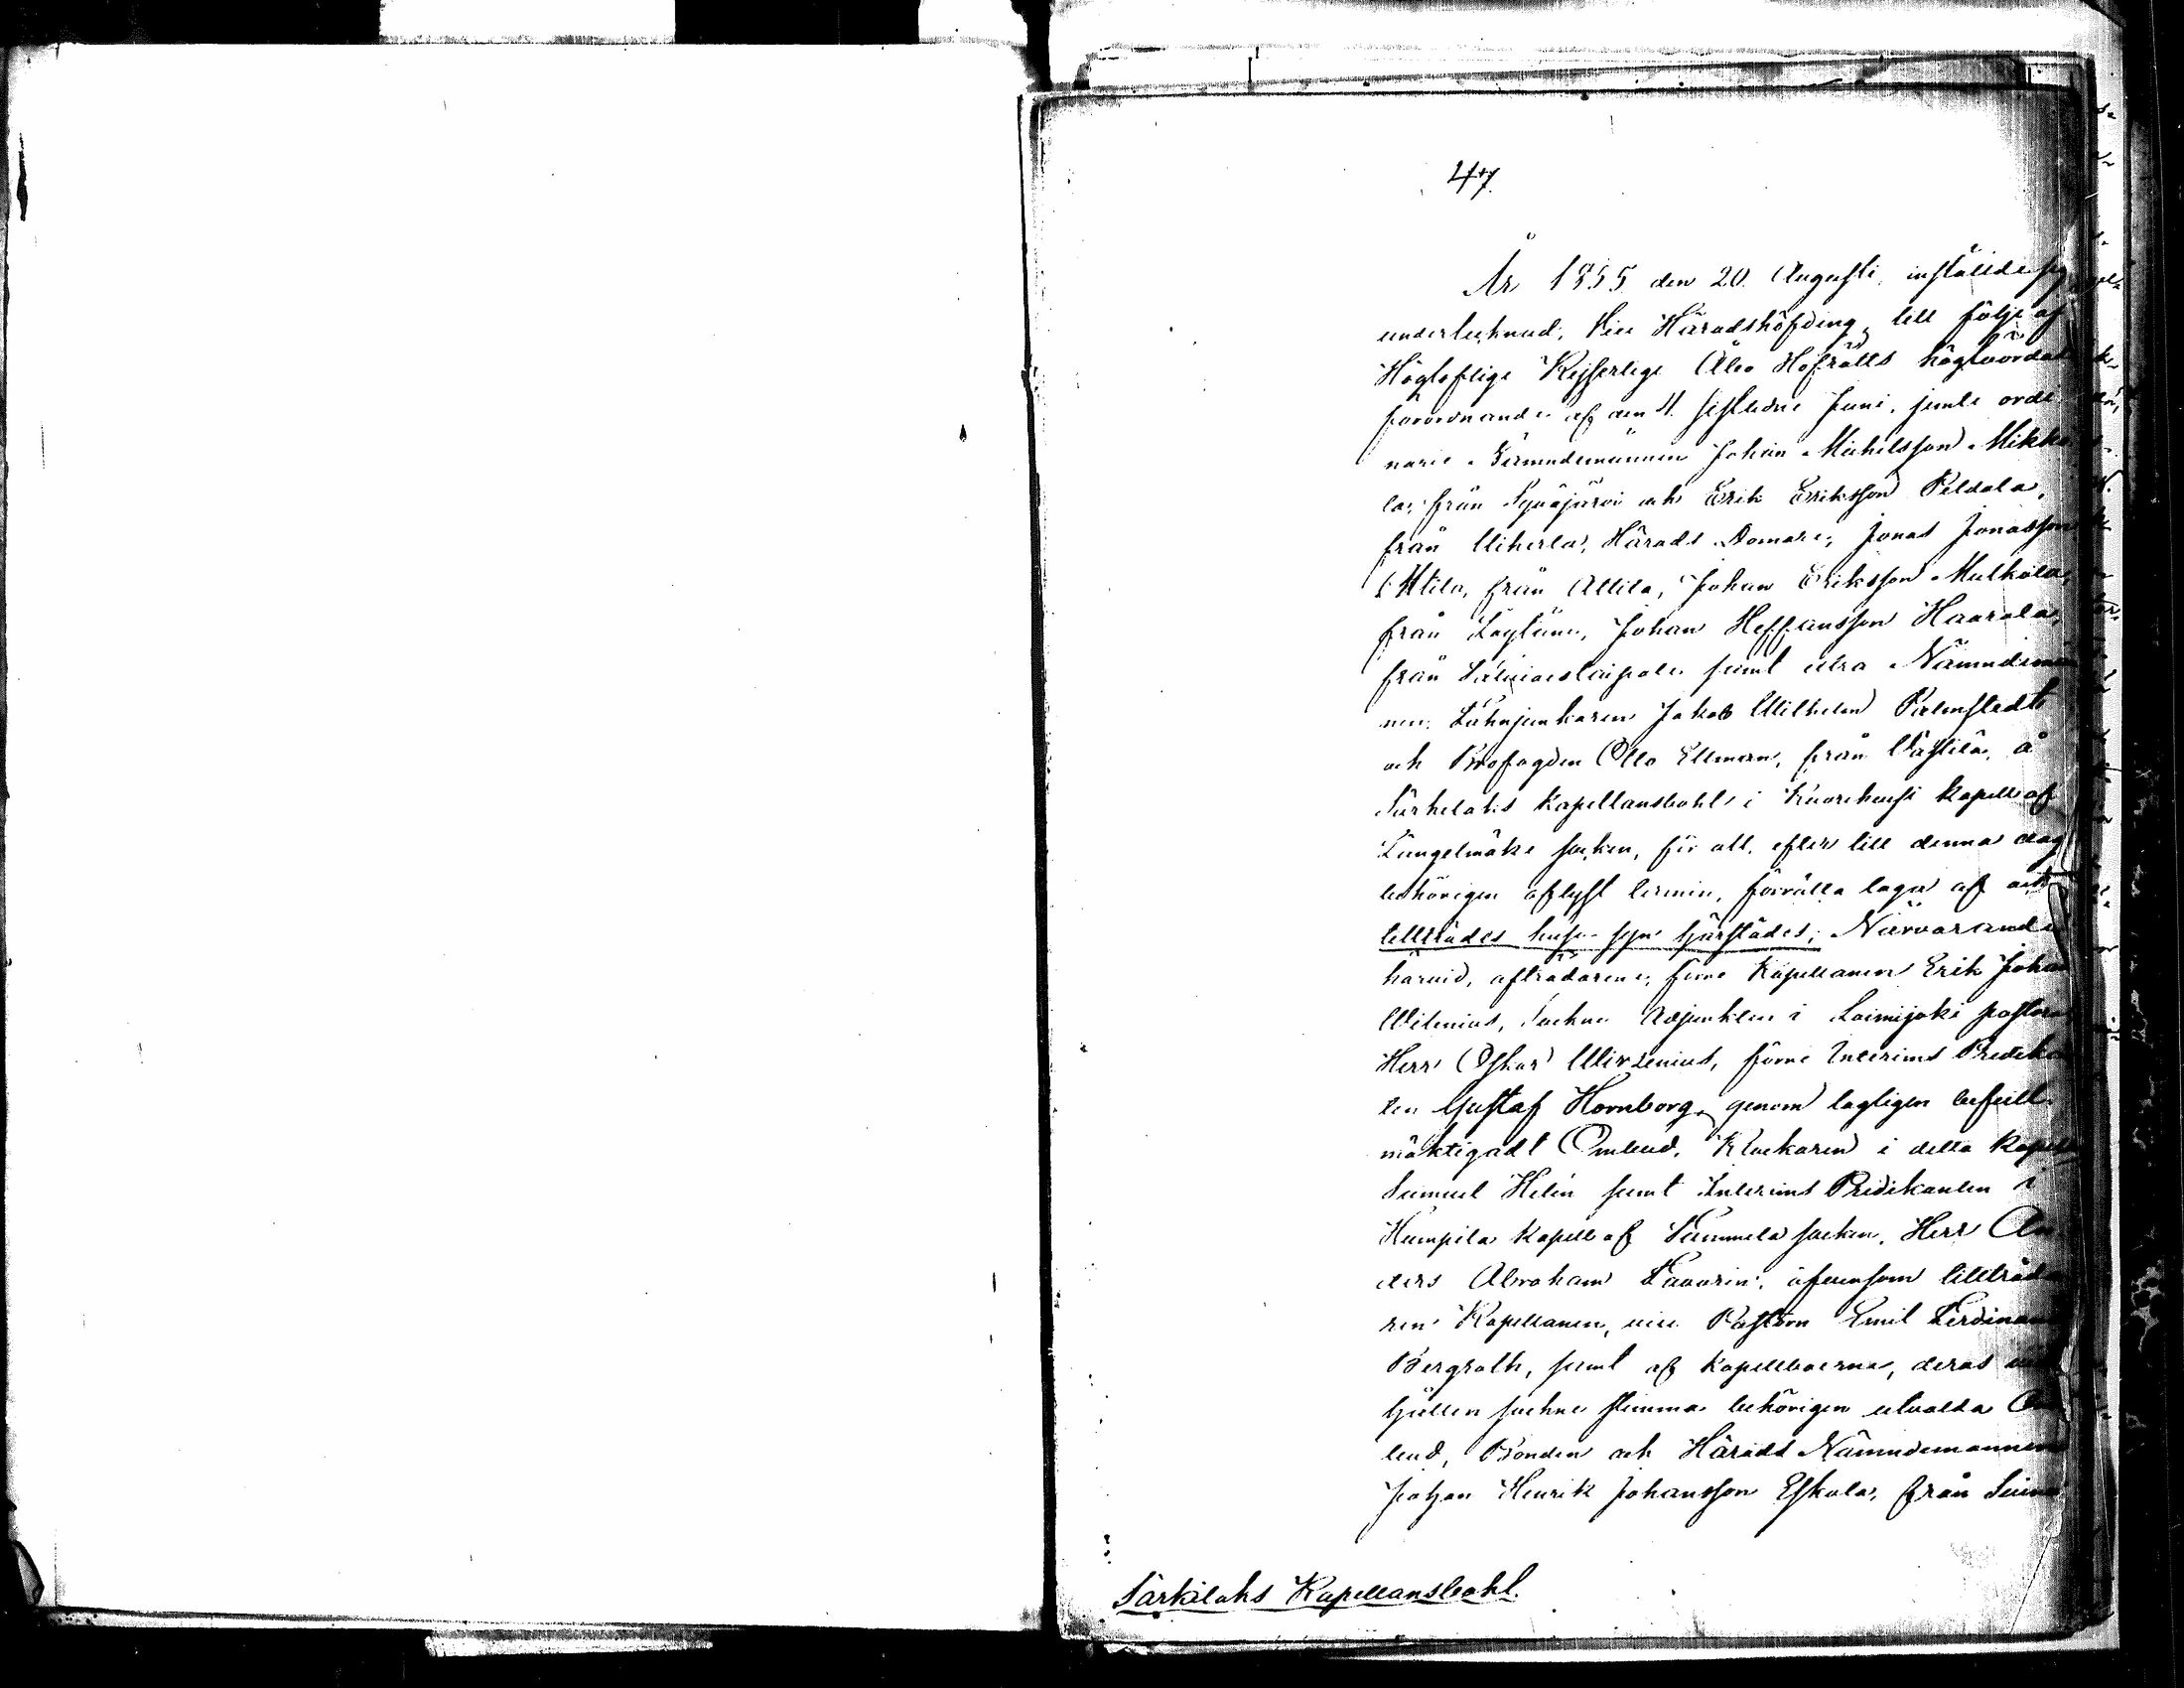 47.
År 1855 den 20 Augusti inställde sig
undertecknad, Vice Häradshöfding, till följe af
Högloflige Kejserlige Åbo Hofrätts höglvördade
förordnande af den 4. sistledne Juni, jemte ordi
narie Nämndemännen Johan Michelsson Mikko
la, från Syväjärvi och Erik Eriksson Peldola,
från Uiherla, Härads Domare, Jonas Jonasson
Attila, från Attila, Johan Eriksson Mulkola,
från Johan Steffansson Haarala,
från samt extra Nämndemän
nen Fahnjunkaren Jakob Wilhelm Palmstedt
och Brofogden Otto Ellman, från Västilä, å
Särkelaks Kapellansbohl i Kuorehvesi kapell af
Längelmäki socken, för att, efter till denna dag
behörigen aflyst termin, förrätta laga af och
tillträdes huse syn härstädes; Närvarande
härvid, afträdarene, förre Kapellanen Erik Johan
Wilenius, Sockne Adjunkten i Loimijoki pastorat
Herr Oskar Wirzenius, förre Interims Predikan
ten Gustaf Hornborg, genom lagligen befull
mäktigadt Ombud, Klockaren i detta kapell
Samuel Helin samt Interims Predikanten i
Humpila kapell af Tammela socken, Herr An
ders Abraham Favorin, äfvensom tillträda
ren Kapellanen, vice Pastorn Emil Ferdinand
Bergroth, samt af kapellboerne, deras
hållen sockne stämma behörigen utvalda Om
bud, Bonden och Härads Nämndemannen
Johan Henrik Johansson Eskola, från
Särkilaks Kapellansbohl.